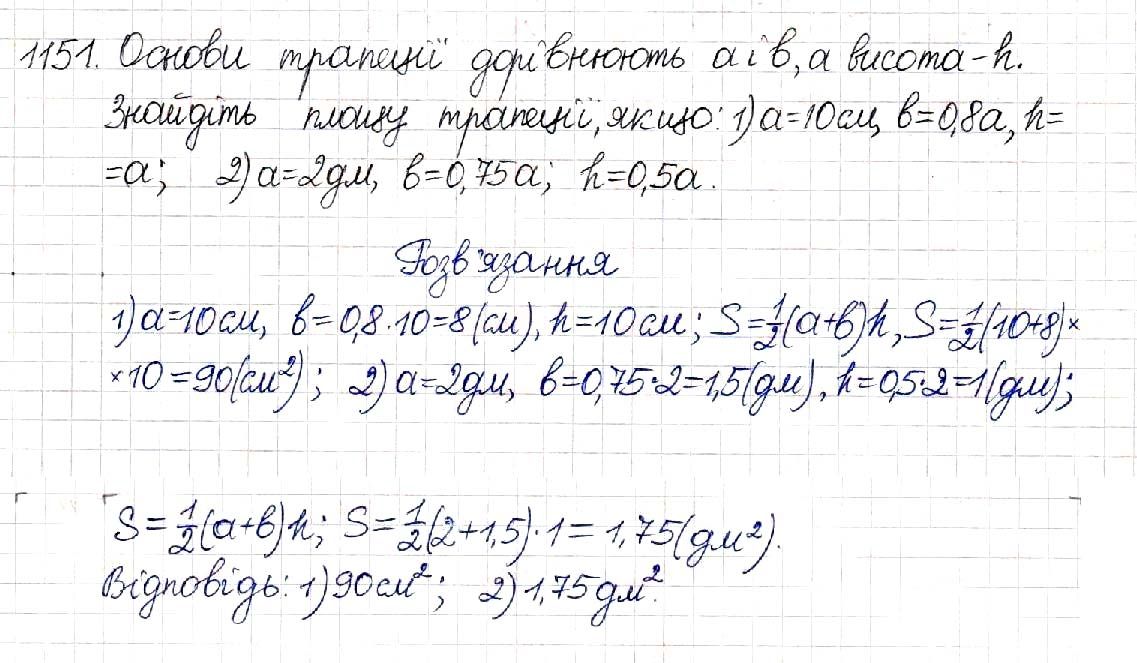 1151. Основи трапеції дорівнюють а і в, а висота – h.
Знайдіть площу трапеції, якщо: 1) а=10см, в=0,8а, h=
=а; 2) а=2дм, в=0,75а; h=0,5а.
Розв'язання
1) а=10см, в=0,8·10=8(см), h=10см; S=1/2(а+в)h, S=1/2(10+8)×
×10=90(см²); 2) а=2дм, в=0,75·2=1,5(дм), h=0,5·2=1(дм);
S=1/2(а+в)h; S=1/2(2+1,5)·1=1,75(дм²).
Відповідь: 1) 90см²; 2) 1,75дм².